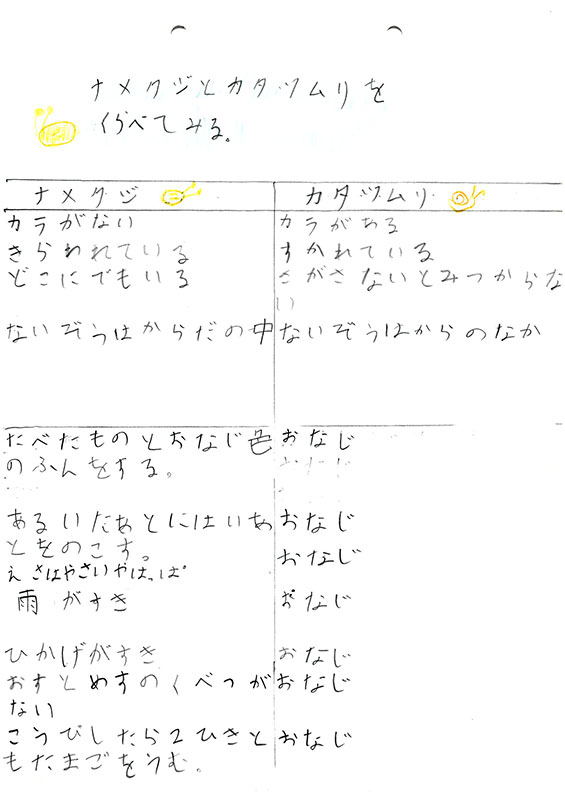 ナメクジとカタツムリを
くらべてみる。
ナメクジ カタツムリ
カラがない カラがある
きらわれている すかれている
どこにでもいる さがさないとみつからな
い
ないぞうはからだの中 ないぞうはからのなか
たべたものとおなじ色 おなじ
のふんをする。
あるいたあとにはいあ おなじ
とをのこす。 おなじ
えさはやさいやはっぱ
雨がすき おなじ
ひかげがすき おなじ
おすとめすのくべつが おなじ
ない
こうびしたら2ひきと おなじ
もたまごをうむ。